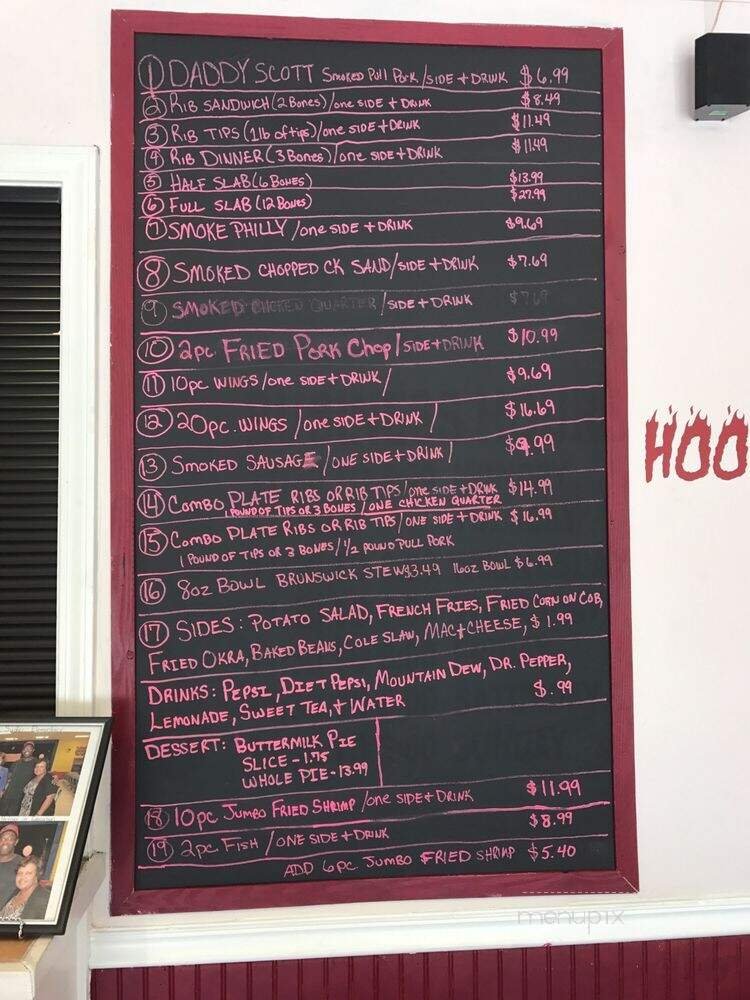 ① DADDY SCOTT SMOKED PULL PORK / SIDE + DRINK $6.99
② RIB SANDWICH (2 BONES) / ONE SIDE + DRINK $8.49
③ RIB TIPS (1 lb of tips) / ONE SIDE + DRINK $11.49
④ RIB DINNER (3 BONES) / ONE SIDE + DRINK $11.49
⑤ HALF SLAB (6 BONES) $13.99
⑥ FULL SLAB (12 BONES) $27.99
⑦ SMOKE PHILLY / ONE SIDE + DRINK $9.69
⑧ SMOKED CHOPPED CK SAND / SIDE + DRINK $7.69
⑨ SMOKED CHICKEN QUARTER / SIDE + DRINK $7.69
⑩ 2pc FRIED PORK CHOP / SIDE + DRINK $10.99
⑪ 10pc WINGS / ONE SIDE + DRINK / $9.69
⑫ 20pc. WINGS / ONE SIDE + DRINK / $16.69
⑬ SMOKED SAUSAGE / ONE SIDE + DRINK / $9.99
⑭ COMBO PLATE RIBS OR RIB TIPS / ONE SIDE + DRINK $14.99
1 POUND OF TIPS OR 3 BONES / ONE CHICKEN QUARTER
⑮ COMBO PLATE RIBS OR RIB TIPS / ONE SIDE + DRINK $16.99
1 POUND OF TIPS OR 3 BONES / 1/2 POUND PULL PORK
⑯ 8oz BOWL BRUNSWICK STEW $3.49 16oz BOWL $6.99
⑰ SIDES: POTATO SALAD, FRENCH FRIES, FRIED CORN ON COB,
FRIED OKRA, BAKED BEANS, COLE SLAW, MAC + CHEESE, $1.99
DRINKS: PEPSI, DIET PEPSI, MOUNTAIN DEW, DR. PEPPER,
LEMONADE, SWEET TEA, + WATER $.99
DESSERT: BUTTERMILK PIE
SLICE - 1.75
WHOLE PIE - 13.99
⑱ 10pc JUMBO FRIED SHRIMP / ONE SIDE + DRINK $11.99
⑲ 2pc FISH / ONE SIDE + DRINK $8.99
ADD 6pc JUMBO FRIED SHRIMP $5.40
HOO
menupix